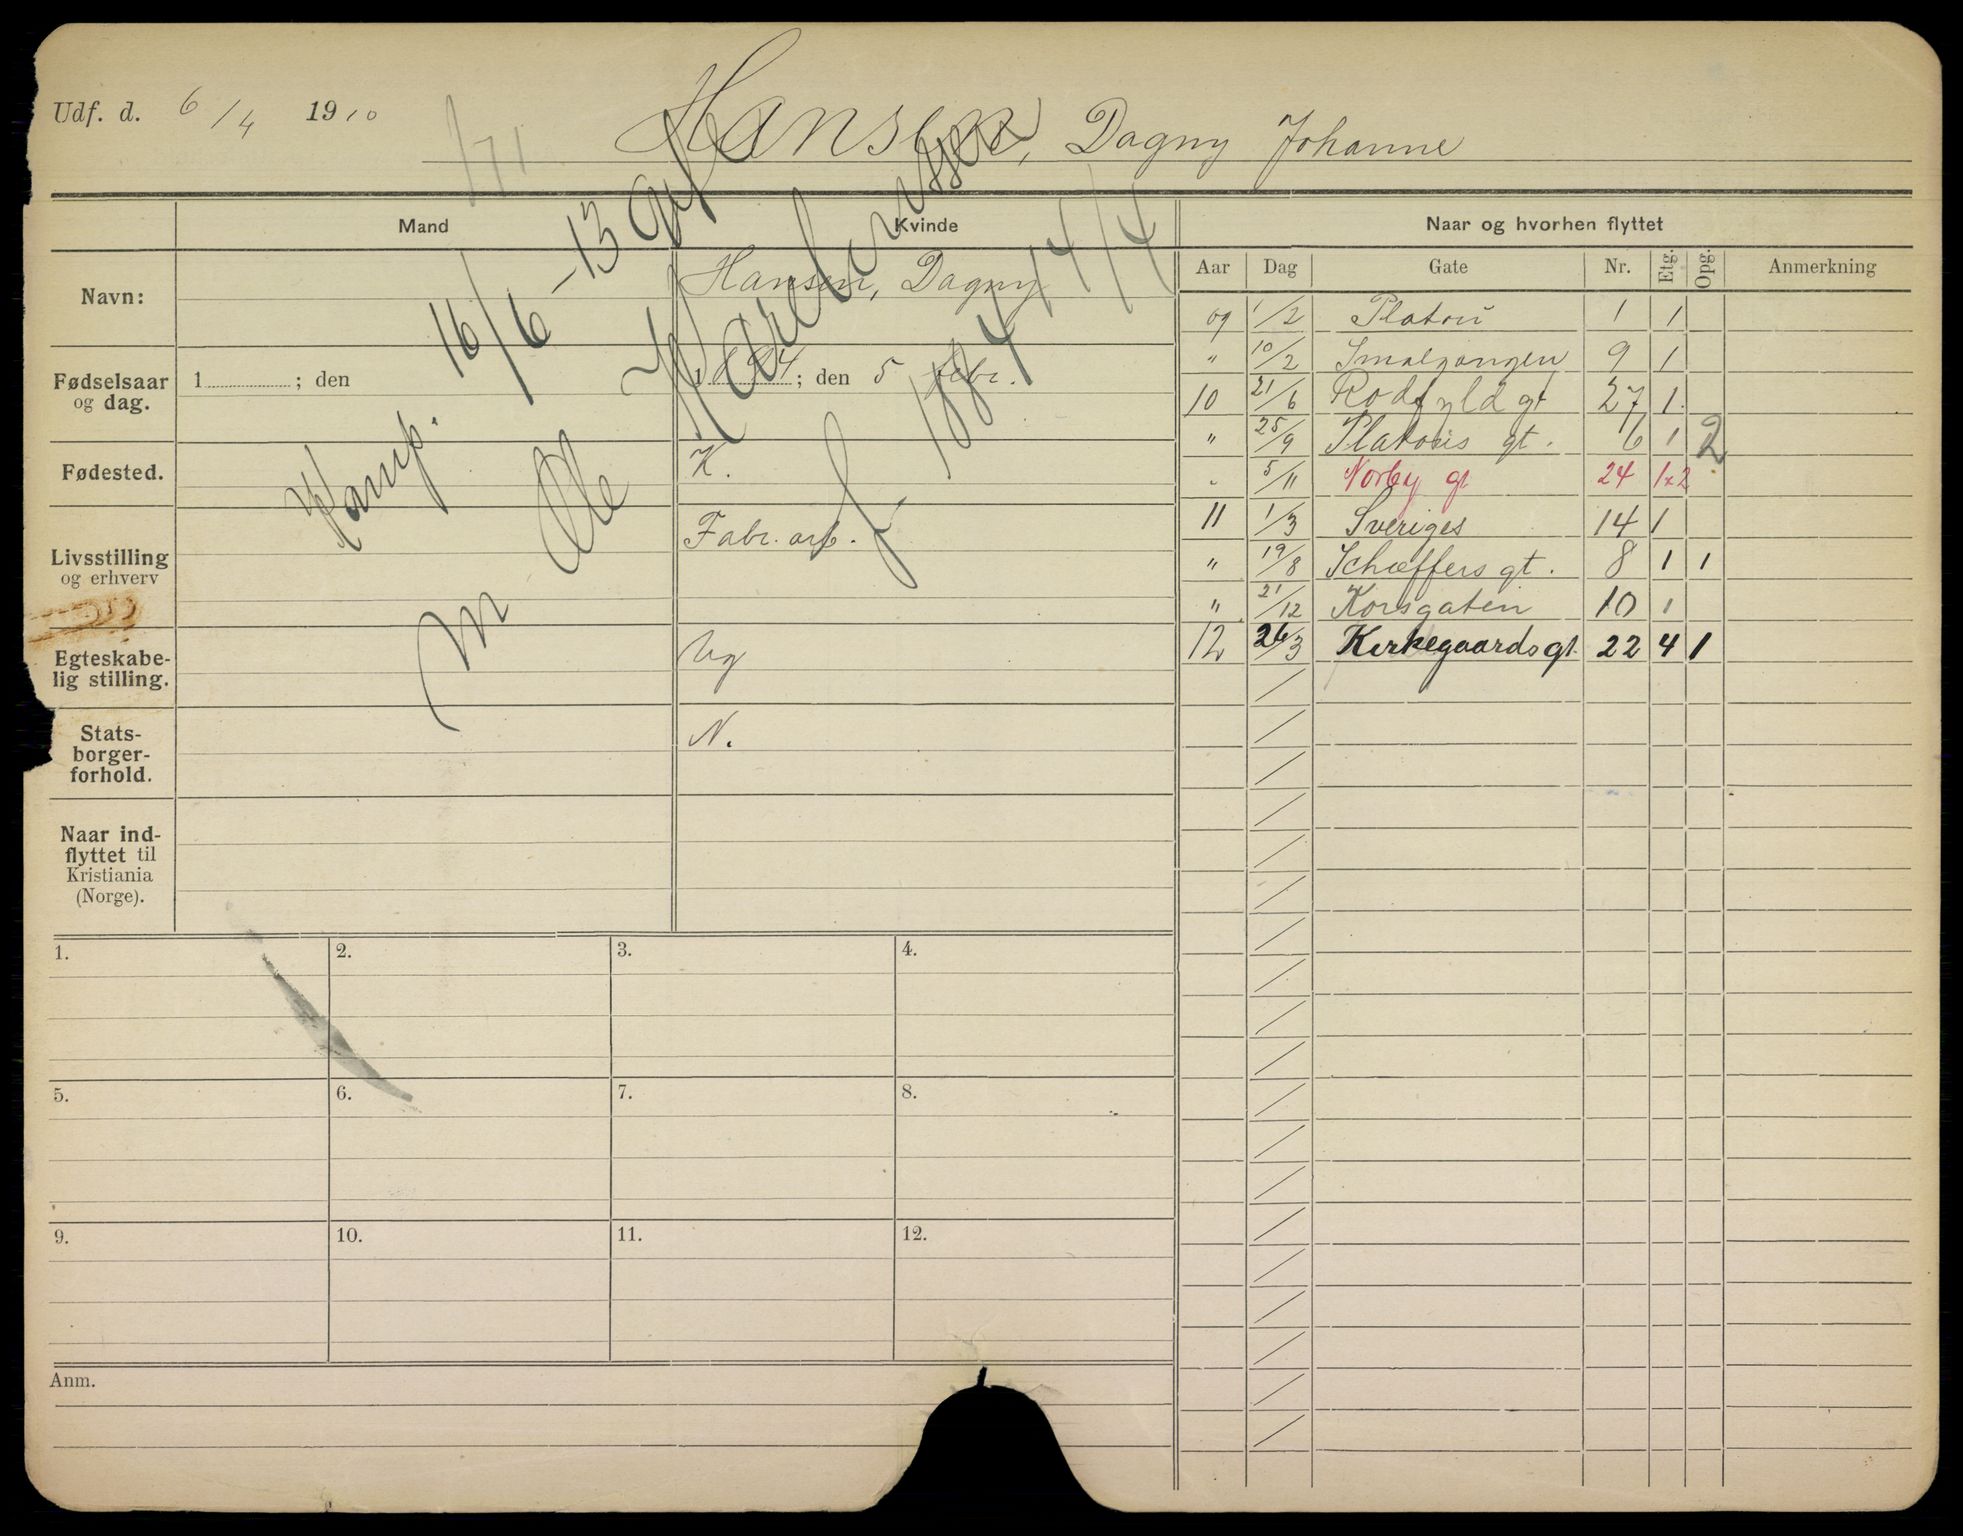 Udf. d. 6/4 1910
171
Hansen, Dagny Johanne
Mand
Kvinde
Naar og hvorhen flyttet
Aar Dag Gate Nr. Etg. Opg. Anmerkning
Navn: Hansen, Dagny
Fødselsaar og dag. 1 ; den 1894; den 5 febr.
Fødested. K.
Livsstilling og erhverv Fabr. arb.
Egteskabelig stilling. Ug
Statsborgerforhold. N.
Naar indflyttet til Kristiania (Norge).
Kamp. 16/6 - 13 gift
m Ole
f. 1884 14/4
og 1/2 Platou 1 1
" 10/2 Smalgangen 9 1
10 21/6 Rodfyld gt 27 1
" 25/9 Platous gt. 6 1 2
" 5/11 Norby gt 24 1x2
11 1/3 Sveriges 14 1
" 19/8 Schæffers gt. 8 1 1
" 21/12 Korsgaten 10 1
12 26/3 Kirkegaards gt. 22 4 1
1. 2. 3. 4.
5. 6. 7. 8.
9. 10. 11. 12.
Anm.